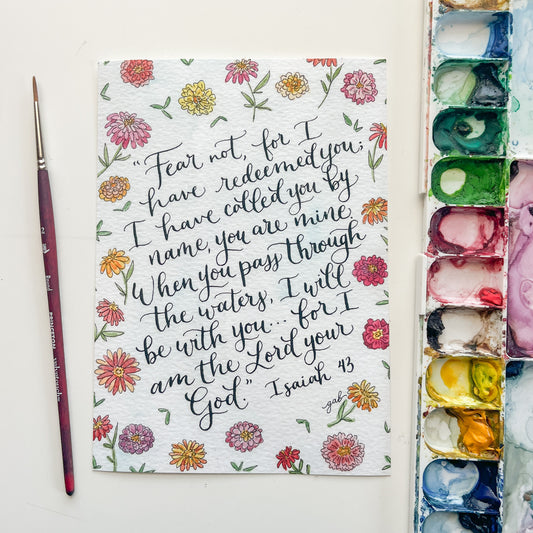 "Fear not, for I
have redeemed you;
I have called you by
name, you are mine.
When you pass through
the waters, I will
be with you... for I
am the Lord your
God." Isaiah 43
gab